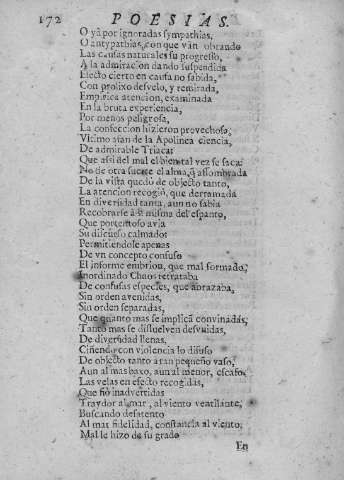 172 POESIAS.
O yà por ignoradas sympathias,
O antypathias, con que vàn obrando
Las causas naturales su progresso,
A la admiracion dando suspendida
Efecto cierto en causa no sabida,
Con prolixo desvelo, y remirada,
Empirica atencion, examinada
En la bruta experiencia,
Por menos peligrosa,
La confeccion hizieron provechosa,
Vltimo afan de la Apolinea ciencia,
De admirable Triaca:
Que assi del mal el bien tal vez se saca:
No de otra suerte el alma, q̃ assombrada
De la vista quedò de objecto tanto,
La atencion recogiò, que derramada
En diversidad tanta, aun no sabia
Recobrarse à sì misma del espanto,
Que portentoso avia
Su discurso calmado:
Permitiendole apenas
De vn concepto confuso
El informe embrion, que mal formado,
Inordinado Chaos retrataba
De confusas especies, que abrazaba,
Sin orden avenidas,
Sin orden separadas,
Que quanto mas se implicã convinadas,
Tanto mas se dissuelven desvnidas,
De diversidad llenas,
Ciñendo con violencia lo difuso
De objecto tanto a tan pequeño vaso,
Aun al mas baxo, aun al menor, escaso.
Las velas en efecto recogidas,
Que fiò inadvertidas
Traydor al mar, al viento ventilante,
Buscando desatento
Al mar fidelidad, constancia al viento,
Mal le hizo de su grado
En